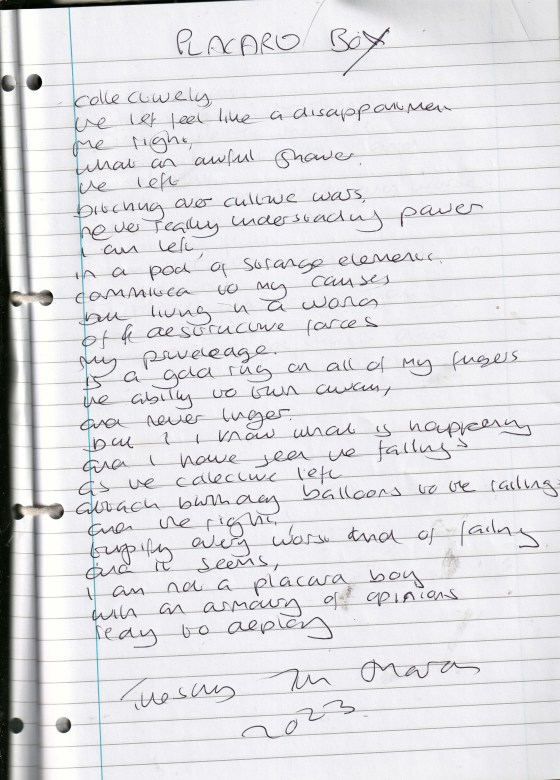 PLACARD BOY
collectively,
the left feel like a disappointment
the right,
what an awful shower.
the left
bitching over culture wars,
never really understanding power
I am left,
in a pod of strange elements.
committed to my causes
but living in a world
of destructive forces
my priveleage.
is a gold ring on all of my fingers
the ability to turn away,
and never linger.
but I know what is happening
and I have seen the failings
as the colective left
attach birthday balloons to the railings
and the right,
every worst kind of failing
and it seems,
I am not a placard boy
with an armoury of opinions
redy to deploy
Tuesday 7th March
2023